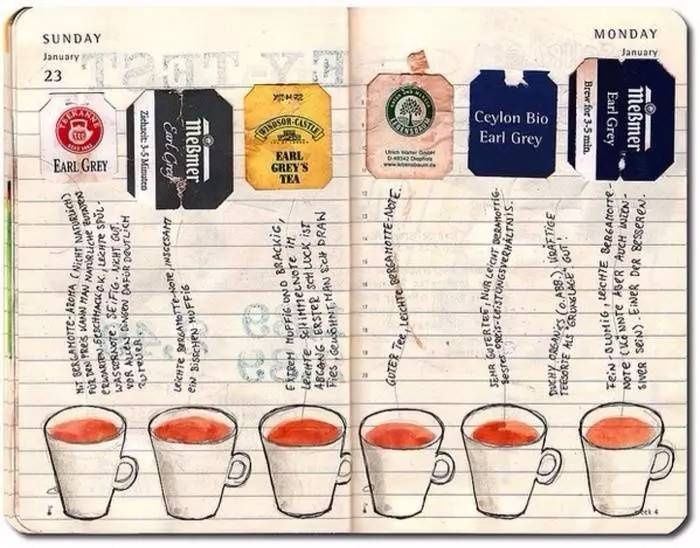 SUNDAY
January
23
MONDAY
January
TEEKANNE
EARL GREY
Meßmer
Earl Grey
Ziehzeit: 3-5 Minuten
WINDSOR-CASTLE
EARL
GREY'S
TEA
LEBENSBAUM
Ulrich Walter GmbH
D-49342 Diepholz
www.lebensbaum.de
Ceylon Bio
Earl Grey
Meßmer
Earl Grey
Brew for 3-5 min.
MIT BERGAMOTTE-AROMA (NICHT NATÜRLICH)
FÜR DEN PREIS KANN MAN NATÜRLICHE ZUTATEN
ERWARTEN. GESCHMACK O.K., LEICHTE SPÜL-
WASSERNOTE: SEIFIG. NICHT GUT.
VOR ALLEN DINGEN DAFÜR DEUTLICH
ZU TEUER.
LEICHTE BERGAMOTTE-NOTE, INSGESAMT
EIN BISSCHEN MUFFIG
EXTREM MUFFIG UND BRACKIG,
LEICHTE SCHIMMELNOTE IM
ABGANG. ERSTER SCHLUCK IST
FIES, GEWÖHNT MAN SICH DRAN
GUTER TEE, LEICHTE BERGAMOTTE-NOTE.
SEHR GUTER TEE, NUR LEICHT BERMOTTIG.
BESTES PREIS-LEISTUNGSVERHÄLTNIS.
DUCHY ORGANICS (O. ABB.) KRÄFTIGE
TEESORTE ALS "GRUNDLAGE" GUT!
FEIN-BLUMIG, LEICHTE BERGAMOTTE-
NOTE (KÖNNTE ABER AUCH INTEN-
SIVER SEIN). EINER DER BESSEREN.
week 4